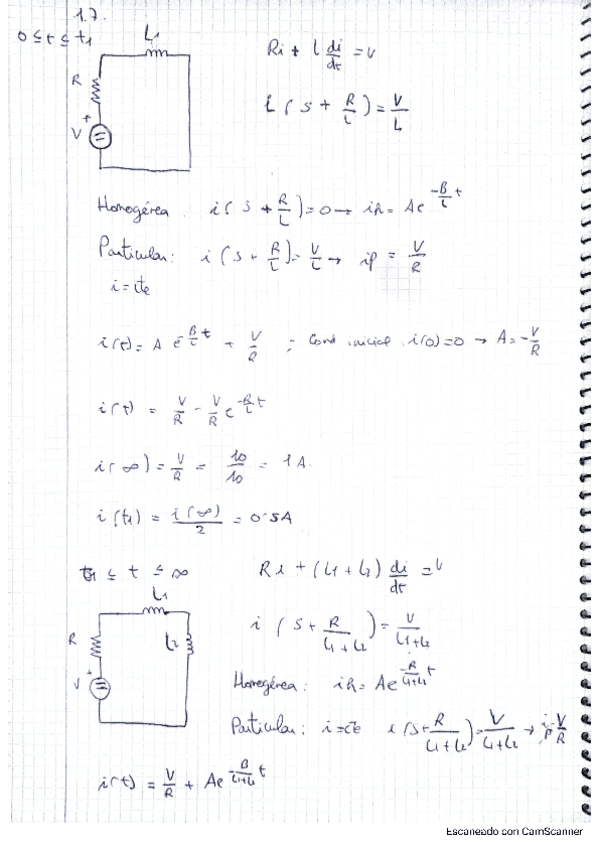 1.7.
0 ≤ t ≤ t1
L1
R
V
+
Ri + L di/dt = V
i (s + R/L) = V/L
Homogénea: i(s + R/L) = 0 → ih = Ae^(-R/L t)
Particular: i(s + R/L) = V/L → ip = V/R
i = cte
i(t) = A e^(-R/L t) + V/R ; Cond inicial i(0)=0 → A = -V/R
i(t) = V/R - V/R e^(-R/L t)
i(∞) = V/R = 10/10 = 1A.
i(t1) = i(∞)/2 = 0'5A
t1 ≤ t ≤ ∞
L1
R
L2
V
+
Ri + (L1+L2) di/dt = V
i (s + R/(L1+L2)) = V/(L1+L2)
Homogénea: ih = Ae^(-R/(L1+L2) t)
Particular: i=cte i(s+R/(L1+L2)) = V/(L1+L2) → ip = V/R
i(t) = V/R + Ae^(-R/(L1+L2) t)
Escaneado con CamScanner